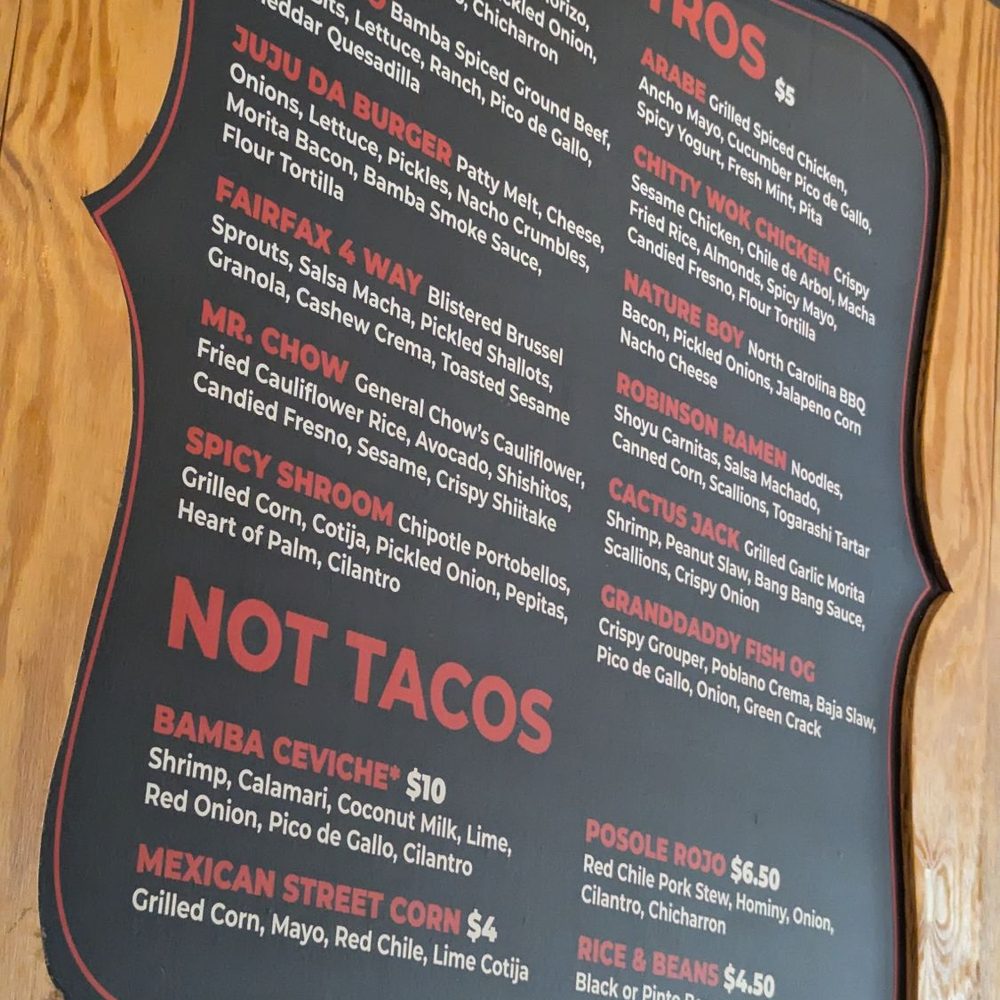 Chorizo,
Pickled Onion,
Chicharron
Bamba Spiced Ground Beef,
Lettuce, Ranch, Pico de Gallo,
Cheddar Quesadilla
JUJU DA BURGER Patty Melt, Cheese,
Onions, Lettuce, Pickles, Nacho Crumbles,
Morita Bacon, Bamba Smoke Sauce,
Flour Tortilla
FAIRFAX 4 WAY Blistered Brussel
Sprouts, Salsa Macha, Pickled Shallots,
Granola, Cashew Crema, Toasted Sesame
MR. CHOW General Chow's Cauliflower,
Fried Cauliflower Rice, Avocado, Shishitos,
Candied Fresno, Sesame, Crispy Shiitake
SPICY SHROOM Chipotle Portobellos,
Grilled Corn, Cotija, Pickled Onion, Pepitas,
Heart of Palm, Cilantro
NOT TACOS
BAMBA CEVICHE* $10
Shrimp, Calamari, Coconut Milk, Lime,
Red Onion, Pico de Gallo, Cilantro
MEXICAN STREET CORN $4
Grilled Corn, Mayo, Red Chile, Lime Cotija
$5
ARABE Grilled Spiced Chicken,
Ancho Mayo, Cucumber Pico de Gallo,
Spicy Yogurt, Fresh Mint, Pita
CHITTY WOK CHICKEN Crispy
Sesame Chicken, Chile de Arbol, Macha
Fried Rice, Almonds, Spicy Mayo,
Candied Fresno, Flour Tortilla
NATURE BOY North Carolina BBQ
Bacon, Pickled Onions, Jalapeno Corn
Nacho Cheese
ROBINSON RAMEN Noodles,
Shoyu Carnitas, Salsa Machado,
Canned Corn, Scallions, Togarashi Tartar
CACTUS JACK Grilled Garlic Morita
Shrimp, Peanut Slaw, Bang Bang Sauce,
Scallions, Crispy Onion
GRANDDADDY FISH OG
Crispy Grouper, Poblano Crema, Baja Slaw,
Pico de Gallo, Onion, Green Crack
POSOLE ROJO $6.50
Red Chile Pork Stew, Hominy, Onion,
Cilantro, Chicharron
RICE & BEANS $4.50
Black or Pinto